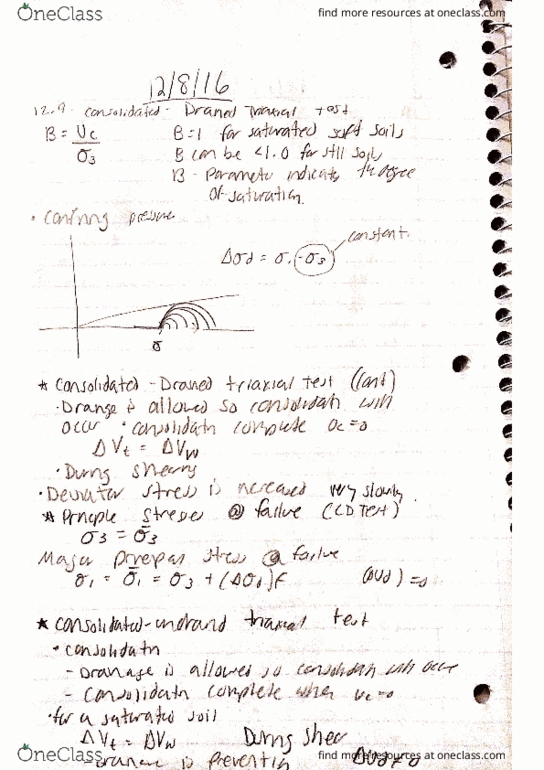 OneClass
find more resources at oneclass.com
12/8/16
12.9. consolidated - Draned Triaxial test
B = Uc / σ3
B=1 for saturated soft soils
B can be <1.0 for stif soils
B - Parameter indicates the degree
of saturation.
• Confinng pressure
constant.
Δσd = σ1 - σ3
σ
* Consolidated - Drained triaxial test (cont)
· Dranage is allowed so consolidatn will
occur • consolidatn complete Uc=0
ΔVt = ΔVw
• Durng shearing
• Deviator stress is increased very slowly.
* Princple stresses @ failure (CD Test)
σ3 = σ̄3
Major principal stress @ failure
σ1 = σ̄1 = σ3 + (Δσd)f
(ΔUd) =0
* consolidated-undrand traxial test
• consolidatn
- Dranage is allowed so consolidatn will occur
- Consolidatn complete when uc=0
· for a saturated soil
ΔVt = ΔVw
During shear
Dranage is preventing
OneClass
find more resources at oneclass.com